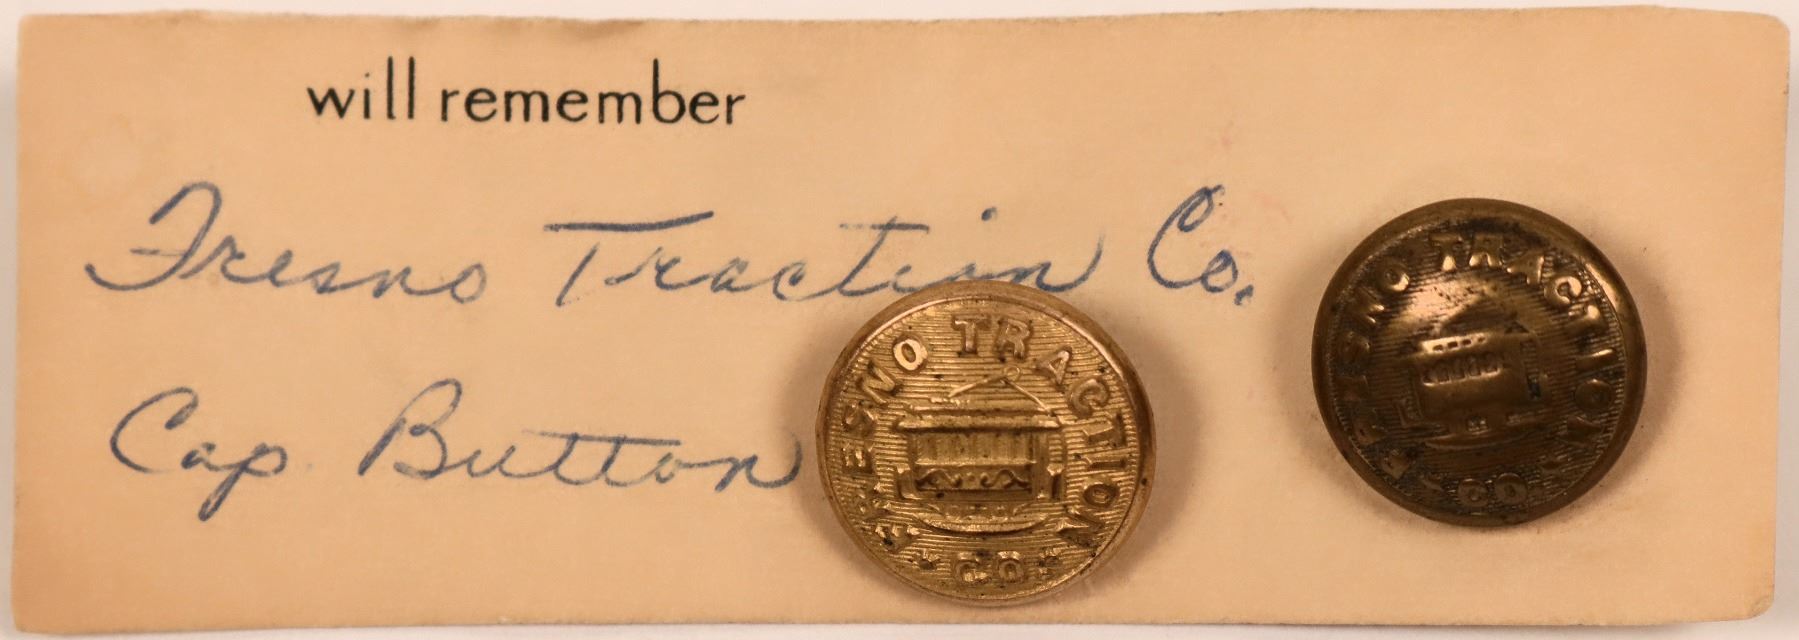 will remember
Fresno Traction Co.
Cap Button
FRESNO TRACTION CO
FRESNO TRACTION CO